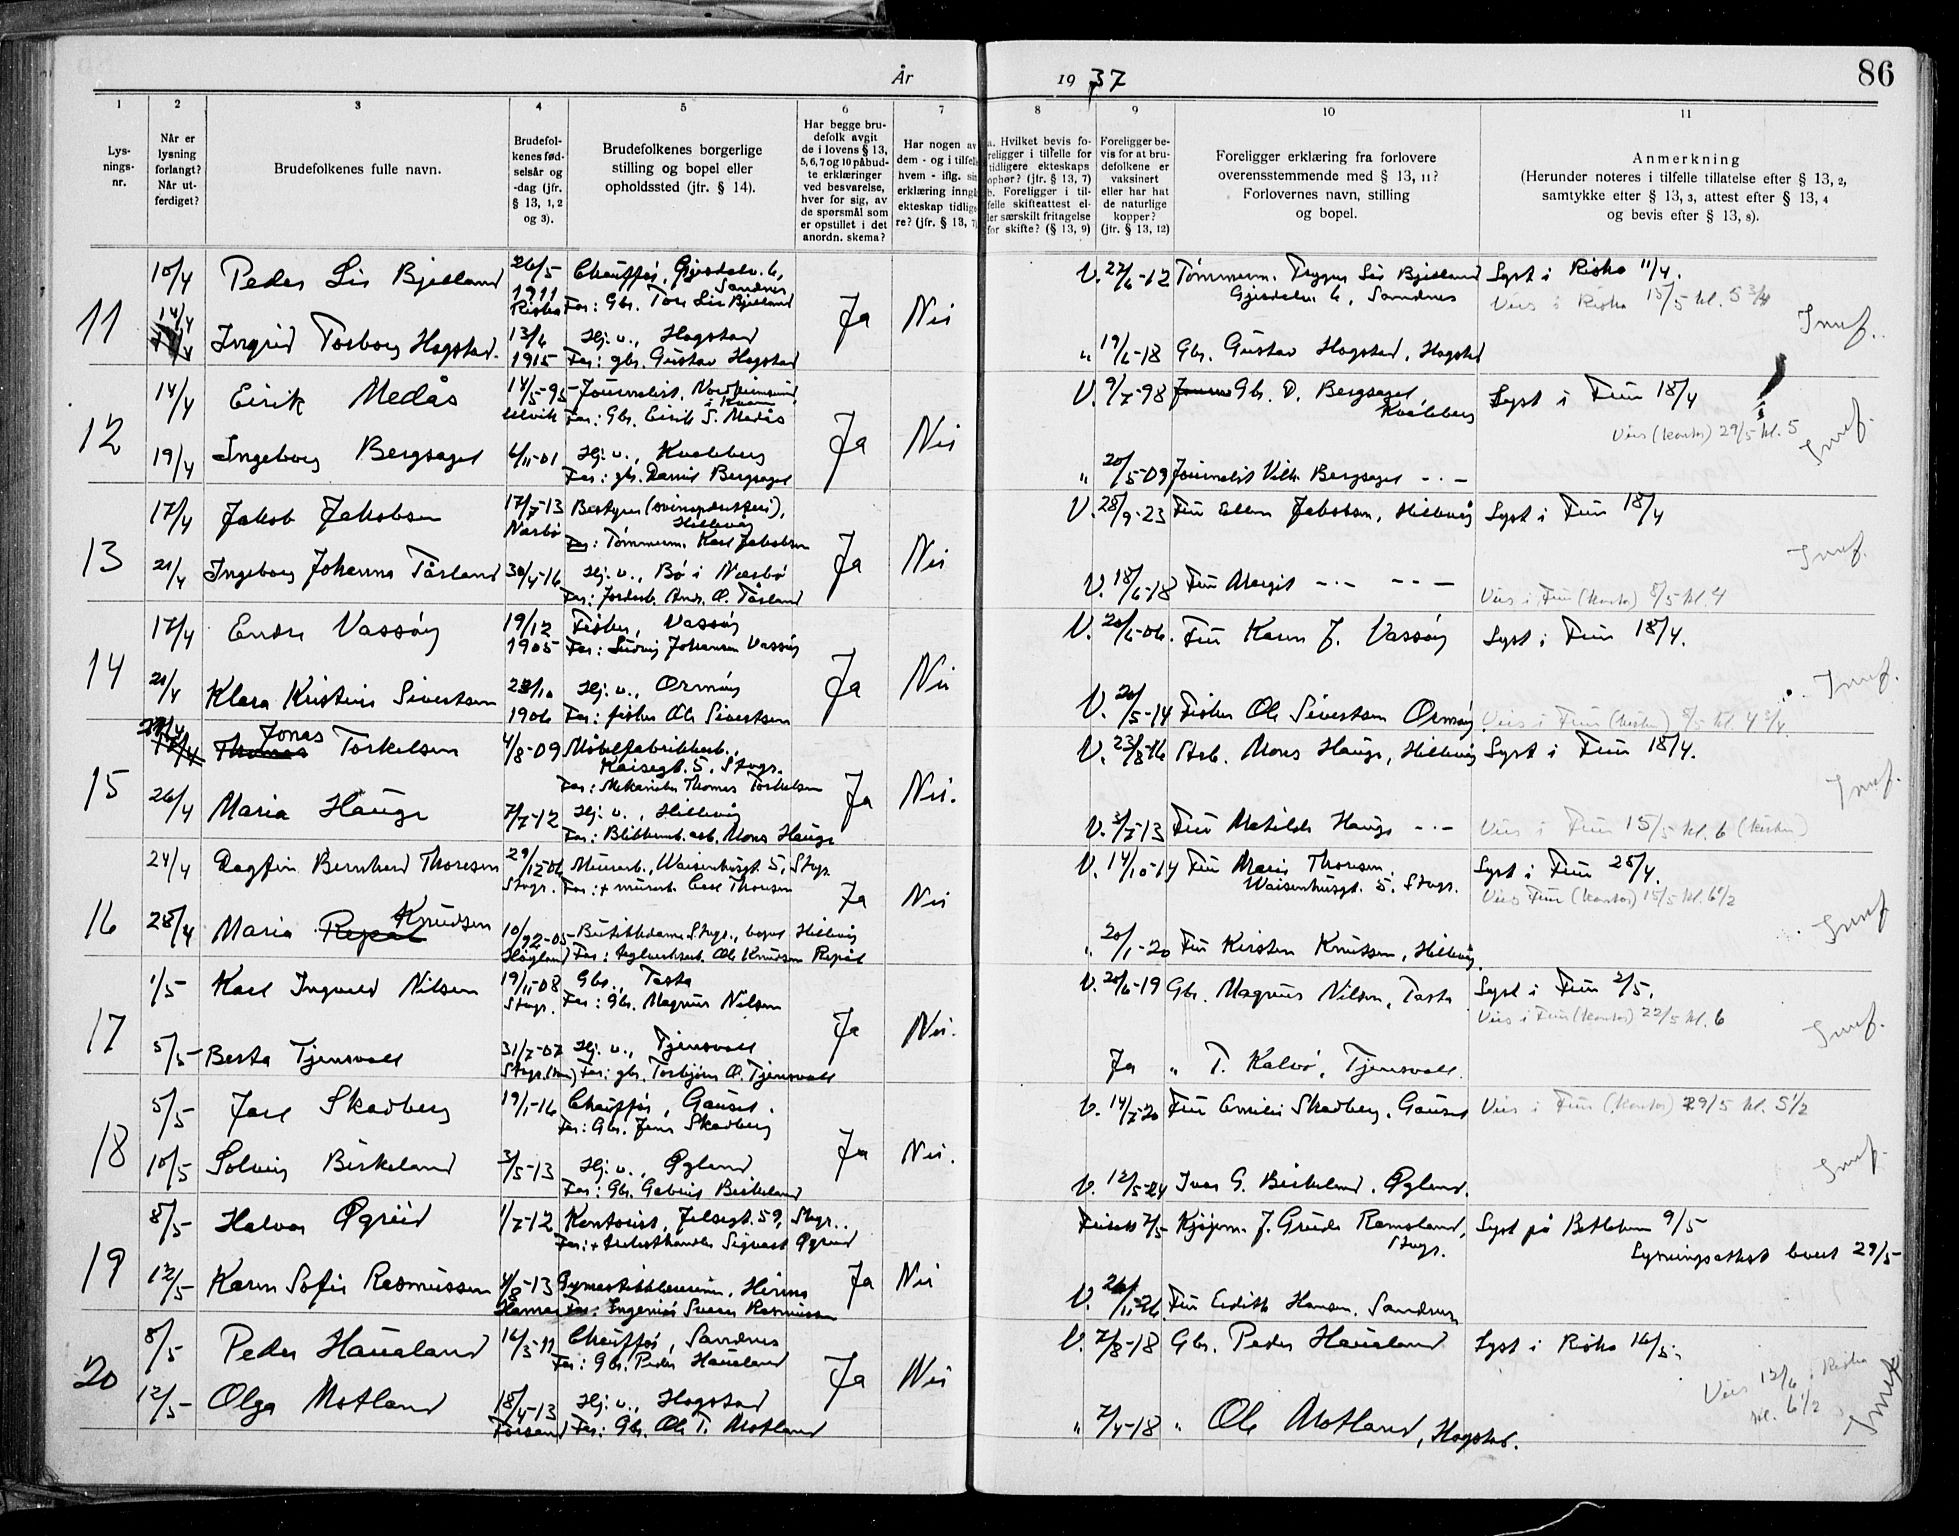 År 1937
86
1 2 3 4 5 6 7 8 9 10 11
Lys-
nings-
nr.
Når er
lysning
forlangt?
Når ut-
ferdiget?
Brudefolkenes fulle navn.
Brudefol-
kenes fød-
selsår og
-dag (jfr.
§ 13, 1, 2
og 3).
Brudefolkenes borgerlige
stilling og bopel eller
opholdssted (jfr. § 14).
Har begge bru-
defolk avgit
de i lovens § 13,
5, 6, 7 og 10 påbud-
te erklæringer
ved besvarelse,
hver for sig, av
de spørsmål som
er opstillet i det
anordn. skema?
Har nogen av
dem - og i tilfelle
hvem - iflg. sin
erklæring inngå
ekteskap tidlige
re? (jfr. § 13, 7)
a. Hvilket bevis fo-
religger i tilfelle for
tidligere ekteskaps
ophør? (jfr. § 13, 7)
b. Foreligger i til-
felle skifteattest el-
ler særskilt fritagelse
for skifte? (§ 13, 9)
Foreligger be-
vis for at bru-
defolkene er
vaksinert
eller har hat
de naturlige
kopper?
(jfr. § 13, 12)
Foreligger erklæring fra forlovere
overensstemmende med § 13, 11?
Forlovernes navn, stilling
og bopel.
Anmerkning
(Herunder noteres i tilfelle tillatelse efter § 13, 2,
samtykke efter § 13, 3, attest efter § 13, 4
og bevis efter § 13, 8).
11
10/4 Peder Lis Bjelland 26/5 1911 Riska Chauffør, Gjesdalv. 6, Sandnes
Far: Gbr. Tore Lis Bjelland
Ja Nei
V. 22/6-12 Tømmerm. Trygve Lis Bjelland
Gjesdalv. 6, Sandnes
Lyst i Riska 11/4.
Vies i Riska 15/5 kl. 5 3/4
14/4 Ingrid Torborg Hogstad. 13/6 1915 Hj. v., Hogstad
Far: gbr. Gustav Hogstad
" 19/6-18 Gbr. Gustav Hogstad, Hogstad
12
14/4 Eirik Medås 14/5-95 Ulvik Journalist, Nordheimsund i Kvam
Far: Gbr. Eirik S. Medås
Ja Nei
V. 9/7-98 Gbr. D. Bergsagel, Kvaleberg
Lyst i Frue 18/4
Vies (kontor) 29/5 kl. 5
19/4 Ingeborg Bergsagel 6/11-01 Hj. v., Kvaleberg
Far: gbr. Daniel Bergsagel
" 20/5-09 Journalist Vilh. Bergsagel - " -
13
17/4 Jakob Jakobsen 17/7-13 Nærbø Bestyrer, Hillevåg
Far: Tømmerm. Karl Jakobsen
Ja Nei
V. 28/9-23 Fru Ellen Jakobsen, Hillevåg
Lyst i Frue 18/4
21/4 Ingeborg Johanna Tårland 30/4-16 Hj. v., Bø i Nærbø
Far: Jordbr. Andr. O. Tårland
V. 18/6-18 Fru Margit - " -
Vies i Frue (kontor) 8/5 kl. 4
14
17/4 Endre Vassøy 19/12 1905 Fisker, Vassøy
Far: Ludvig Johansen Vassøy
Ja Nei
V. 20/6-06. Fru Karen J. Vassøy
Lyst i Frue 18/4.
21/4 Klara Kristine Sivertsen 28/10 1906 Hj. v., Ormøy
Far: fisker Ole Sivertsen
V. 20/5-14 Fisker Ole Sivertsen Ormøy
15
17/4 Thomas Jonas Torkelsen 4/8-09 Møbelfabrikkarb., Kaisegt. 5, Stvgr.
Far: Mekaniker Thomas Torkelsen
Ja Nei.
V. 23/8-16 Arb. Mons Hauge, Hillevåg
Lyst i Frue 18/4.
26/4 Maria Hauge 7/7-12 Hj. v., Hillevåg
Far: Blikkemb. arb. Mons Hauge
V. 3/7-13 Fru Matilde Hauge - " -
Vies i Frue 15/5 kl. 6 (kirken)
16
24/4 Dagfin Bernhard Thoresen 29/12-06 Stvgr. Murarb., Waisenhusgt. 5, Stvgr.
Far: + murarb. Carl Thoresen
Ja Nei
V. 14/10-14 Fru Marie Thoresen,
Waisenhusgt. 5, Stvgr.
Lyst i Frue 25/4.
Vies Frue (kontor) 15/5 kl. 6 1/2
28/4 Maria Repål Knudsen Høyland Butikkdame Stvgr., bopel Hillevåg
Far: teglverksarb. Ole Knudsen Repål
" 20/1-20 Fru Kirsten Knutsen, Hillevåg.
17
1/5 Karl Ingvald Nilsen 19/11-08 Stvgr. Gbr., Tasta
Far: Gbr. Magnus Nilsen
Ja Nei.
V. 20/6-19 Gbr. Magnus Nilsen, Tasta
Lyst i Frue 2/5.
Vies i Frue (kontor) 22/5 kl. 6
5/5 Berta Tjensvoll 31/7-07 Hj. v., Tjensvoll
Far: gbr. Torbjørn O. Tjensvoll
Ja " T. Kalvø, Tjensvoll.
18
5/5 Jarl Skadberg 19/1-16 Chauffør, Gausel.
Far: Gbr. Jens Skadberg
Ja Nei.
V. 14/7-20 Fru Emilie Skadberg, Gausel
Vies i Frue (kontor) 29/5 kl. 5 1/2
10/5 Solveig Birkeland 3/5-13 Hj. v., Øgland
Far: Gbr. Gabriel Birkeland
V. 12/5-24 Ivar G. Birkeland, Øgland.
19
8/5 Halvor Øgreid 1/7-12 Kontorist, Jelsagt. 59, Stvgr.
Far: + trelasthandler Sigvart Øgreid
Ja Nei
7/5 J. Grude Ramsland, Stvgr.
Lyst på Betlehem 9/5
Lysningsattest levert 29/5
12/5 Karen Sofie Rasmussen 4/8-13 Hamar Hinna
Far: Ingeniør Svein Rasmussen
V. 26/11-26 Fru Edith Hansen, Sandnes
20
8/5 Peder Haualand 16/3-11 Chauffør, Sandnes
Far: Gbr. Peder Haualand
Ja Nei
V. 7/8-18 Gbr. Peder Haualand
Lyst i Riska 16/5.
Vies 12/6 i Riska
kl. 6 1/2
12/5 Olga Motland 18/4-13 Forsand Hj. v., Hogstad
Far: Gbr. Ole T. Motland
" 7/4-18 " Ole Motland, Hogstad.